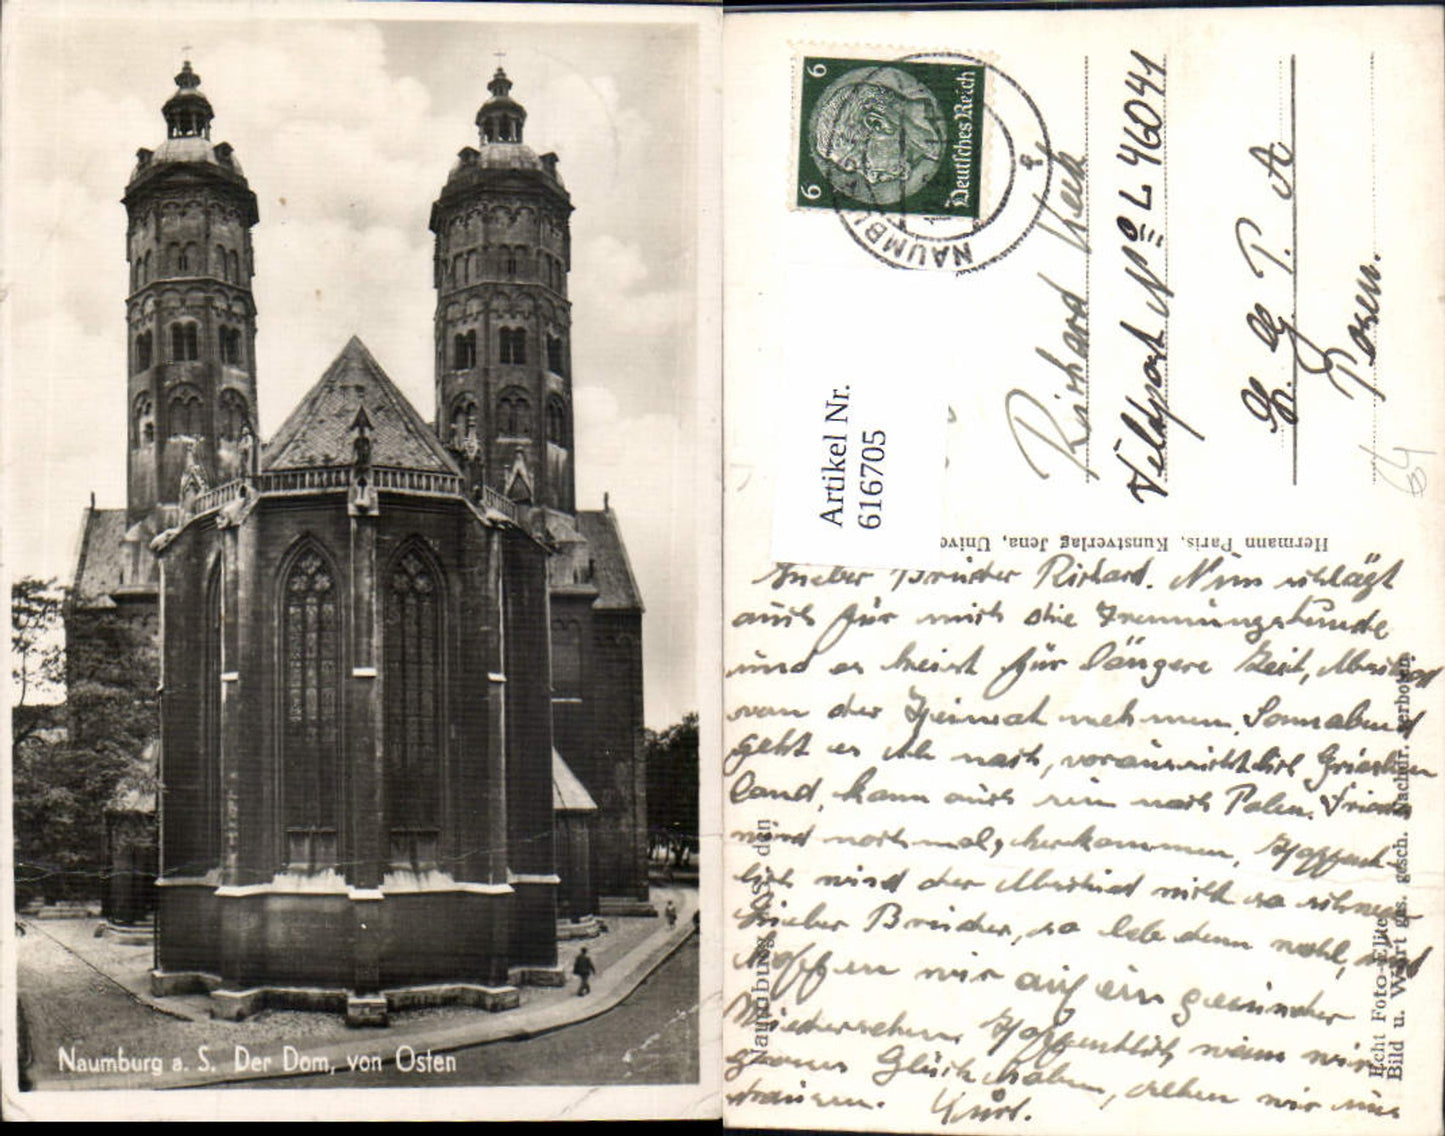 Naumburg a. S. Der Dom, von Osten
6
6
Deutsches Reich
NAUMBU
Richard
Feldpost No L 46041
L. G. P. A
Posen.
64
Artikel Nr.
616705
Hermann Paris, Kunstverlag Jena, Unive
Naumburg a/S. den
Echt Foto-Elite
Bild u. Wort ges. gesch. Nachdr. verboten.
Lieber Bruder Richard. Nun schlägt
auch für mich die Trennungsstunde
und es heist für längere Zeit, Abschied
von der Heimat nehmen. Sonnabend
geht es ab nach, voraussichtlich Griechen
land, kann auch sein nach Polen.
wird noch mal, herkommen, Hoffent-
lich wird der Abschied nicht so schwer
Lieber Bruder, so lebe denn wohl, und
hoffen wir auf ein gesundes
Wiedersehen. Hoffentlich wenn wir
Glück haben, sehen wir uns
draussen. Kurt.